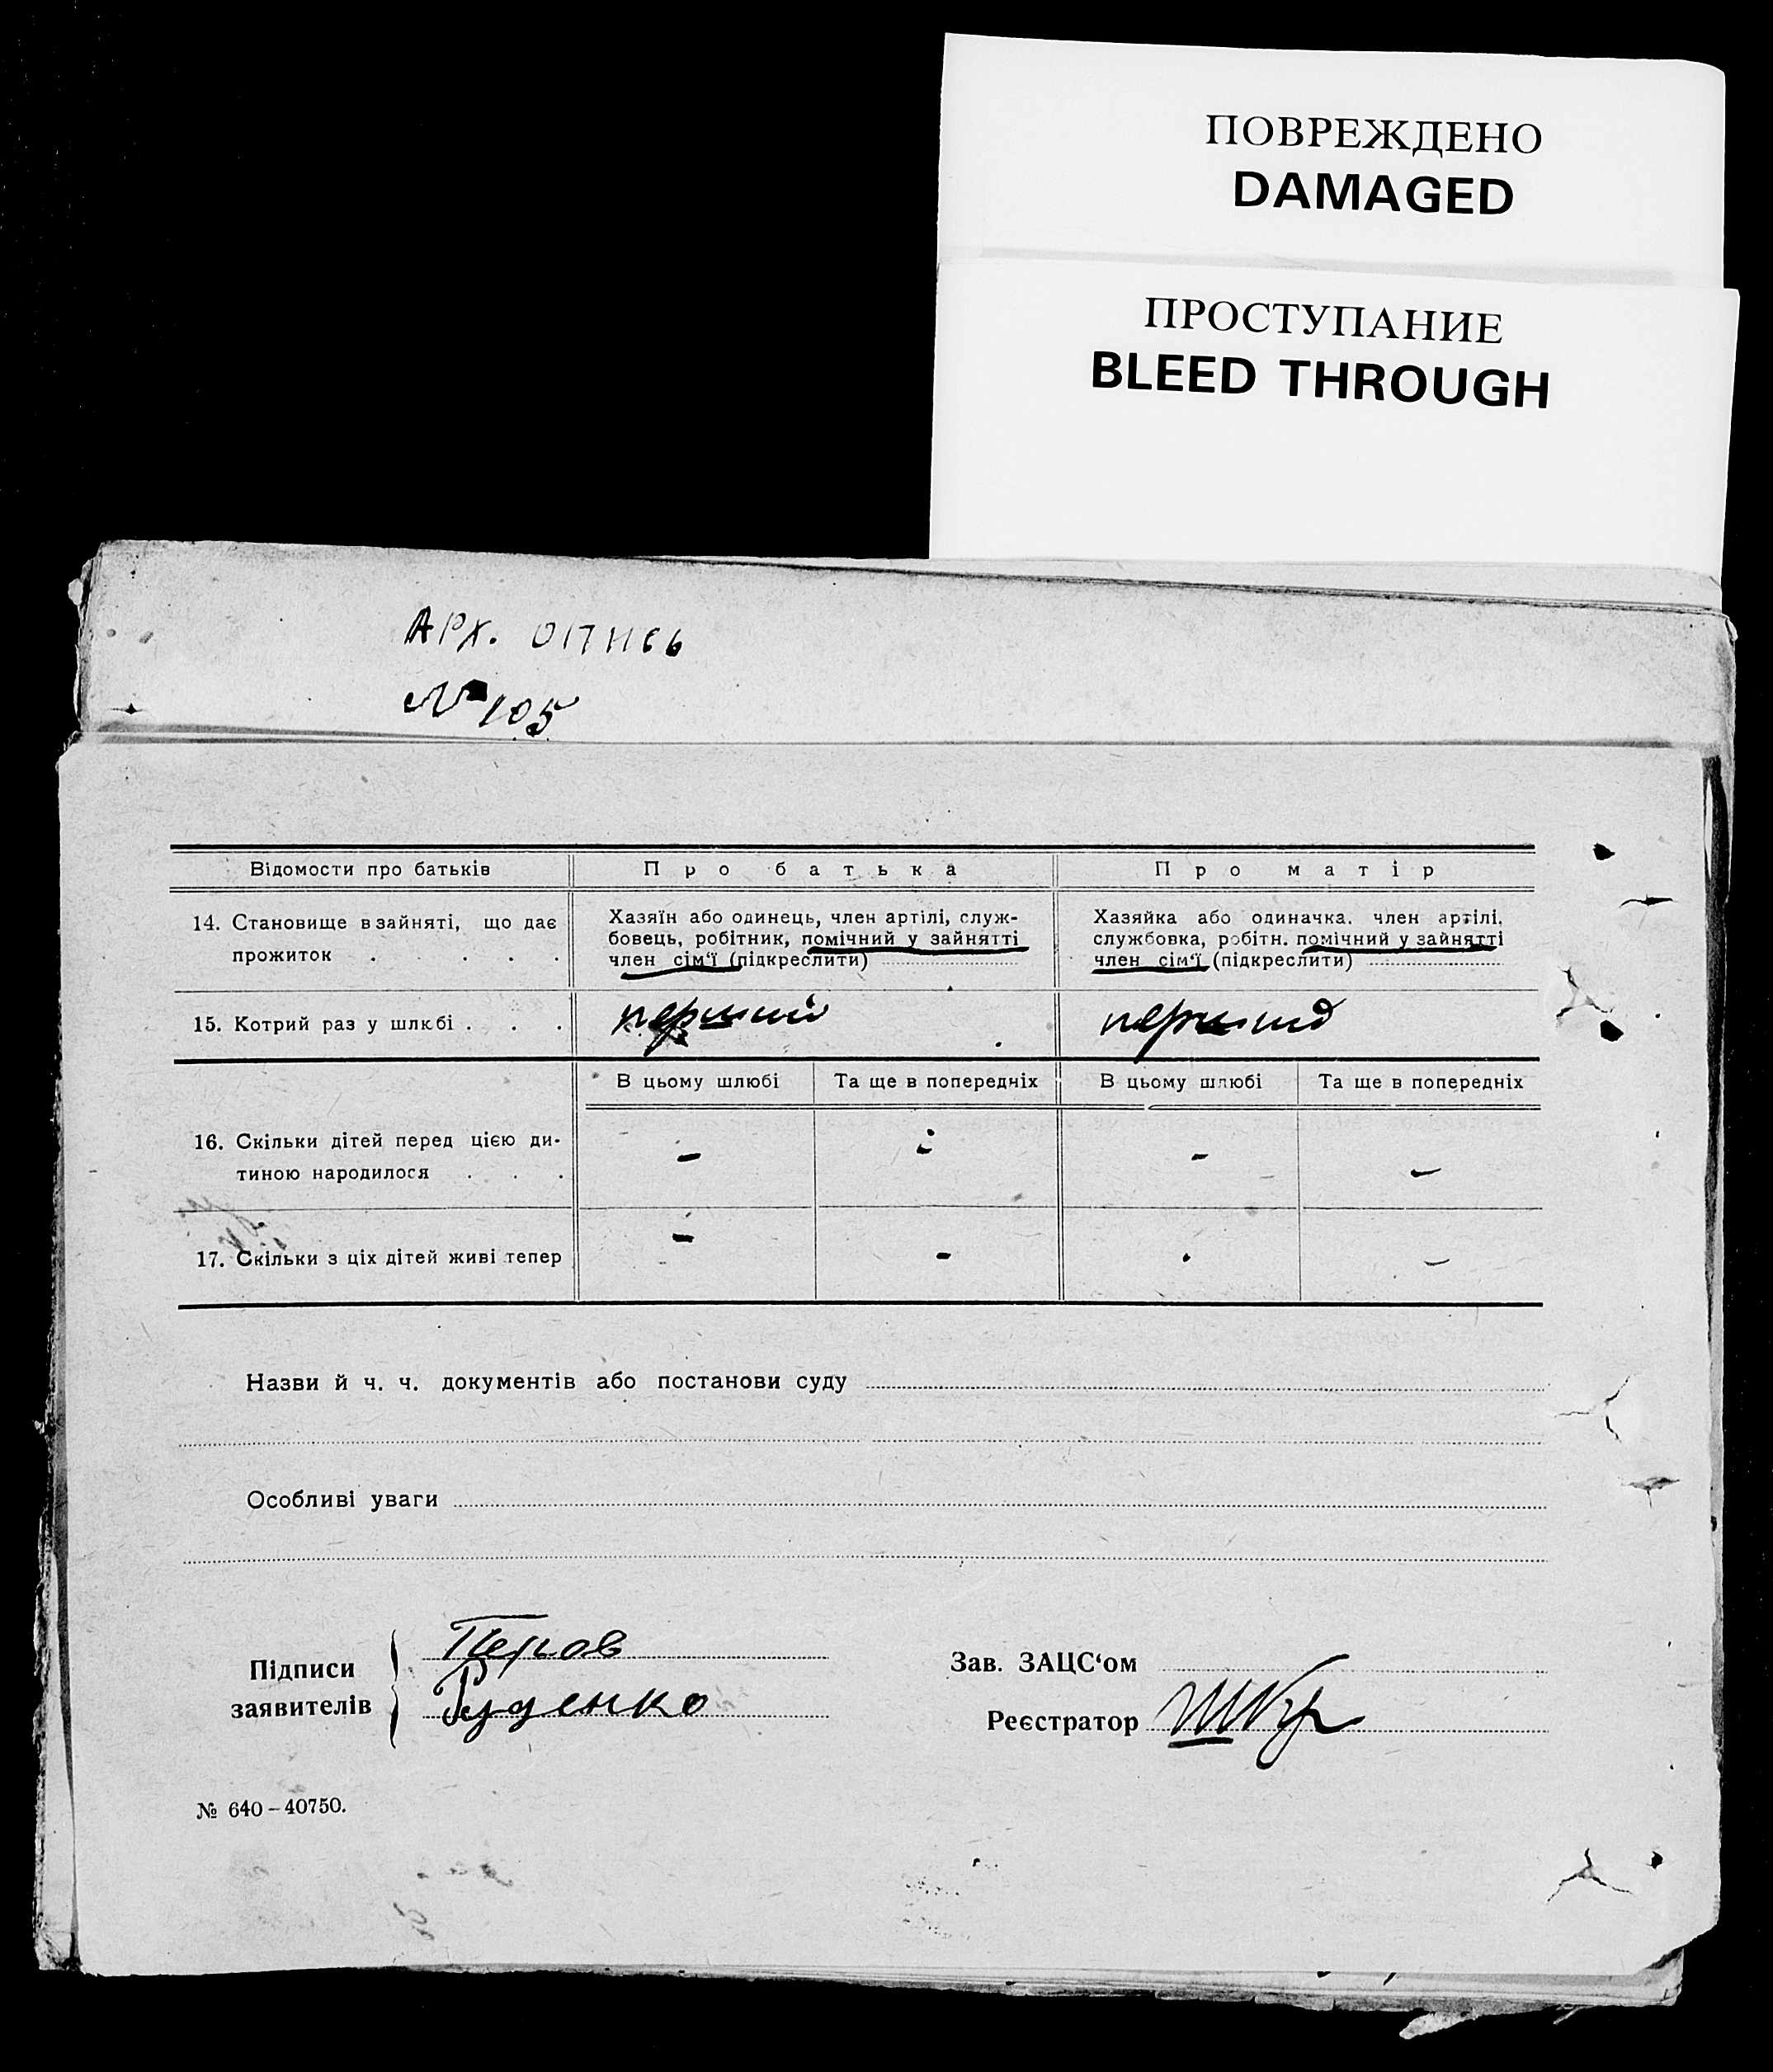 ПОВРЕЖДЕНО
DAMAGED
ПРОСТУПАНИЕ
BLEED THROUGH
АРХ.
№ 105
Відомости про батьків
Про батька
Про матір
14. Становище в зайняті, що дає
прожиток . . . . .
Хазяїн або одинець, член артілі, служ-
бовець, робітник, помічний у зайнятті
член сім'ї (підкреслити)
Хазяйка або одиначка, член артілі,
службовка, робітн. помічний у зайнятті
член сім'ї (підкреслити)
15. Котрий раз у шлюбі . . .
перший
перший
В цьому шлюбі
Та ще в попередніх
В цьому шлюбі
Та ще в попередніх
16. Скільки дітей перед цією ди-
тиною народилося . . .
- - - -
17. Скільки з ціх дітей живі тепер
- - - -
Назви й ч. ч. документів або постанови суду
Особливі уваги
Підписи
заявителів
Руденко
Зав. ЗАЦС'ом
Реєстратор
№ 640-40750.